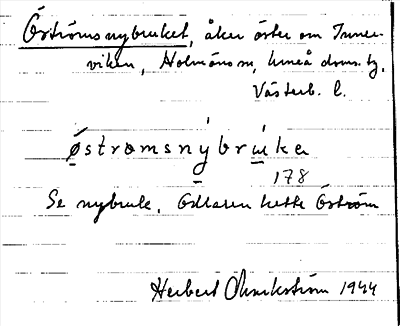 Öströmsnybruket, åker öster om Inner-
viken, Holmöns sn, Umeå doms. tg,
Västerb. l.
østromsnýbrúke
178
Se nybruk. Odlaren hette Öström
Herbert 1944